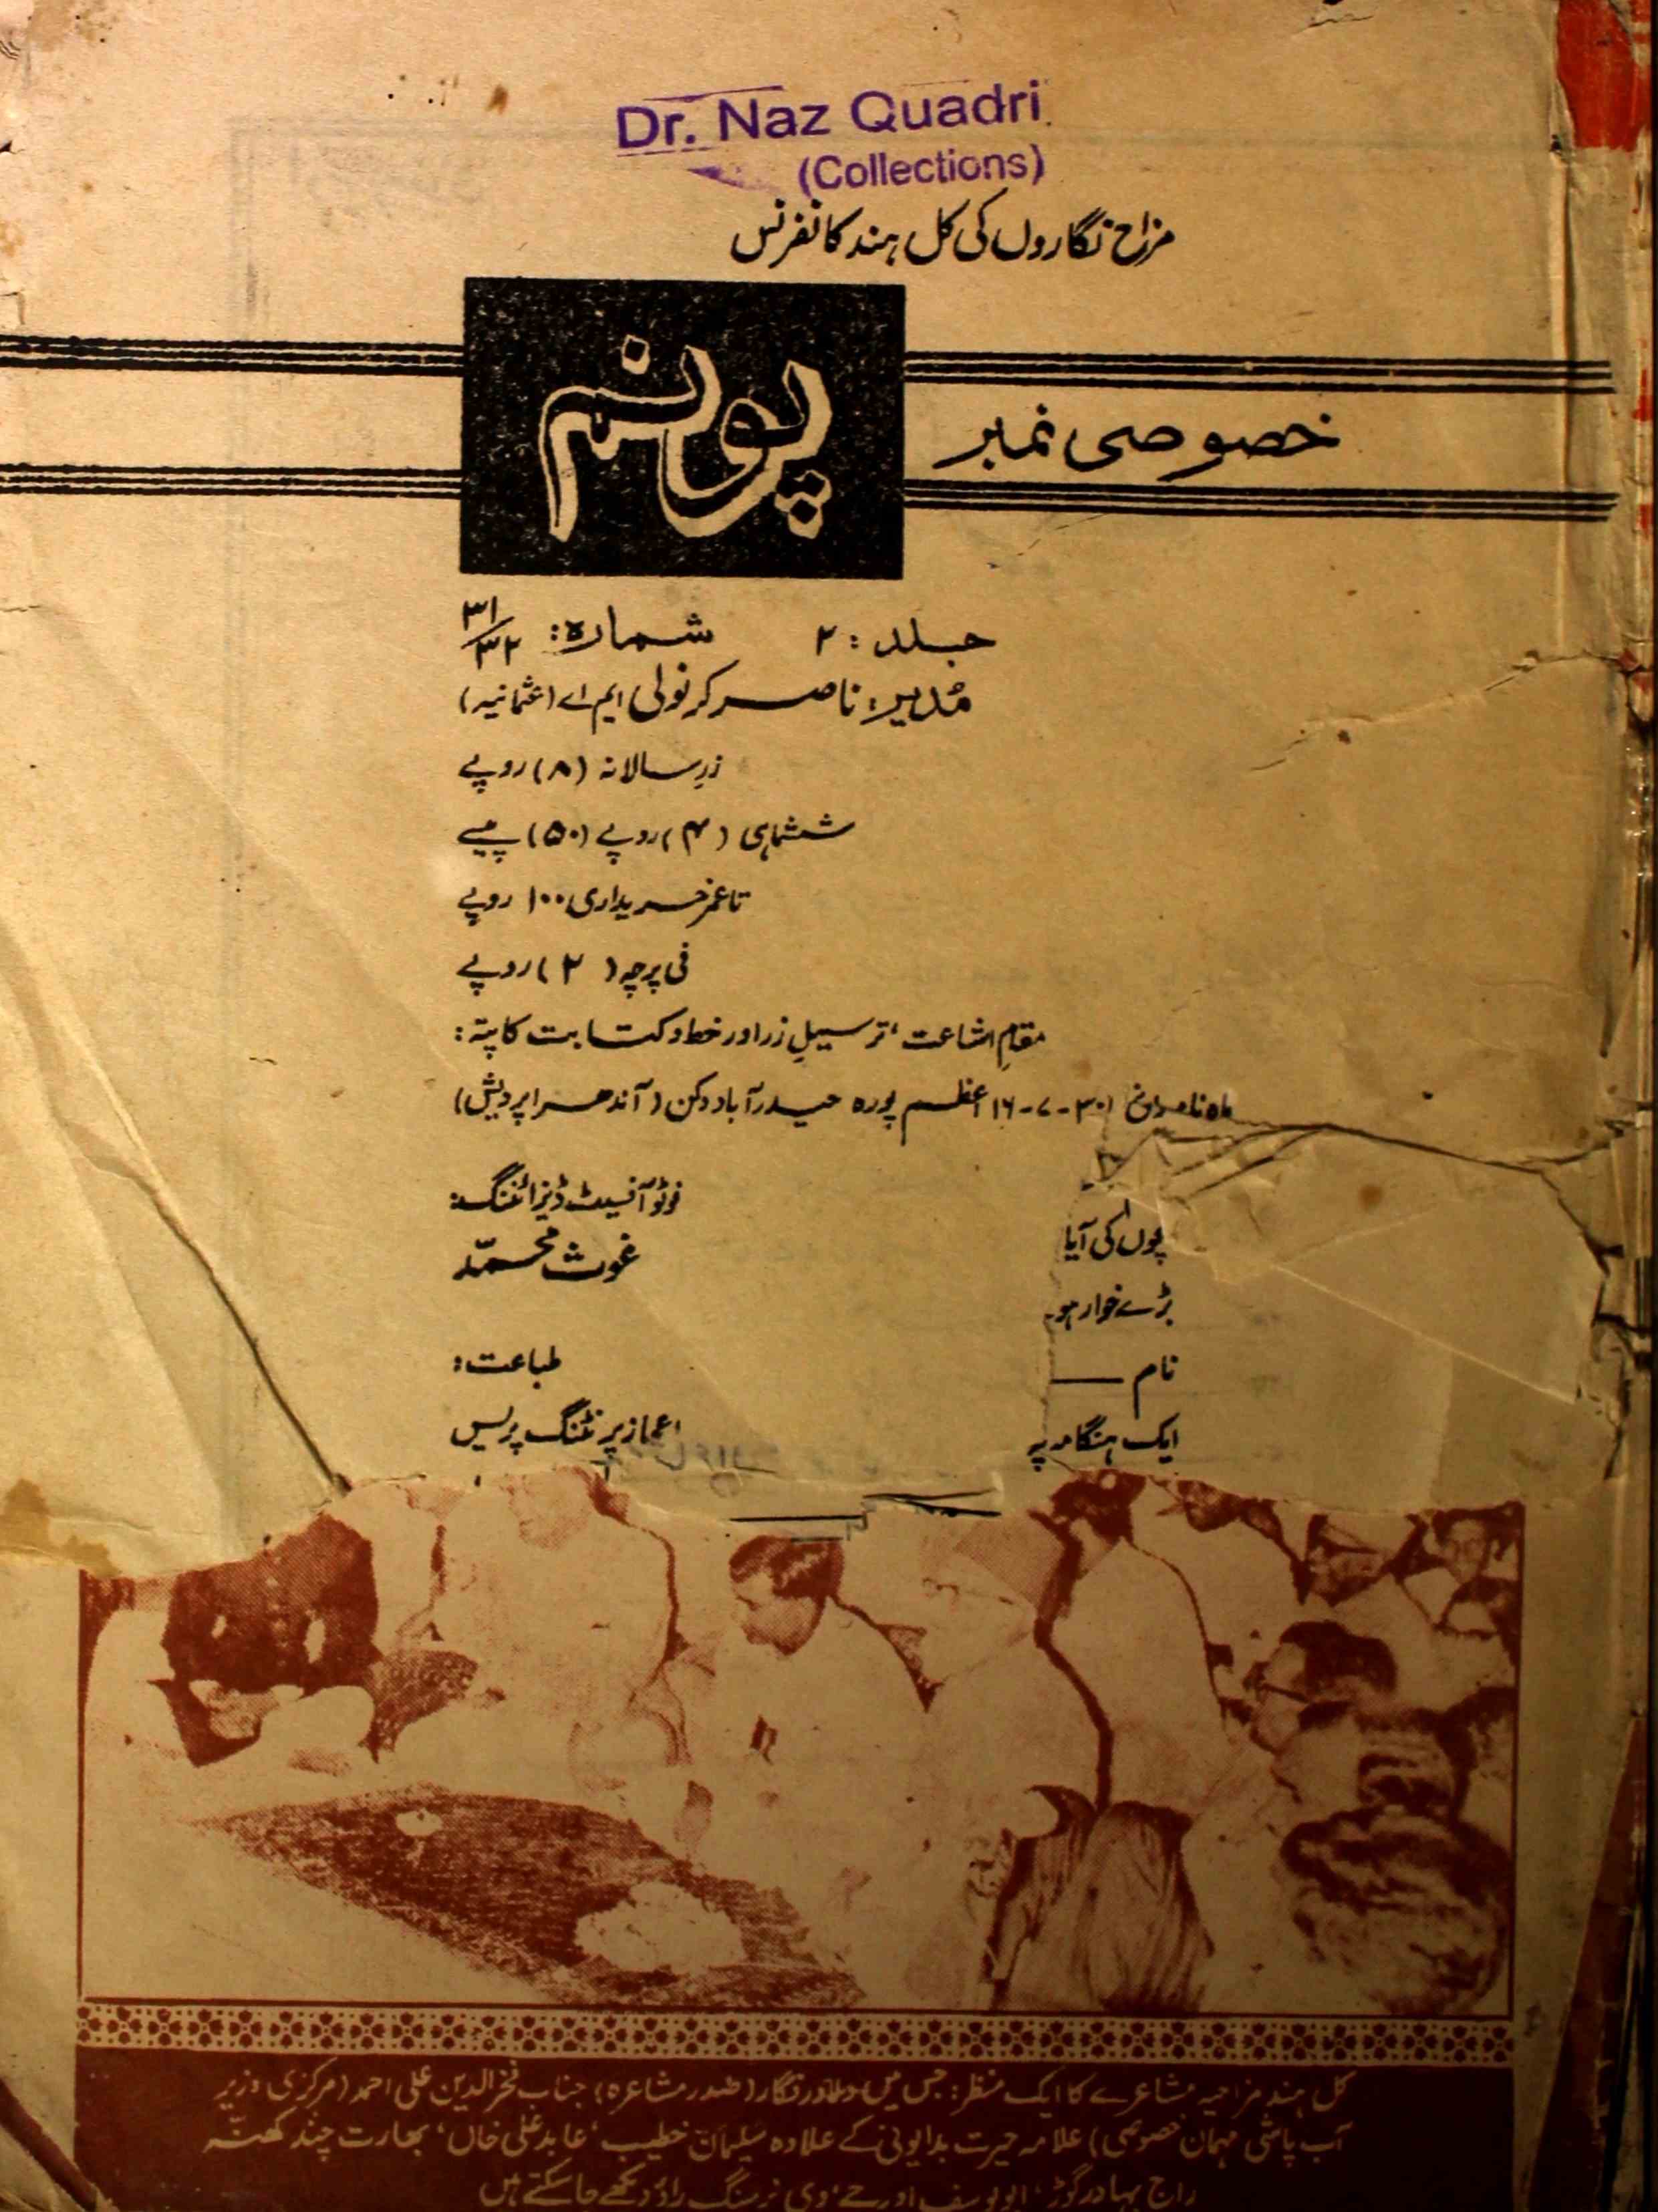 Dr. Naz Quadri
(Collections)
مزاح نگاروں کی کل ہند کانفرنس
پونم
خصوصی نمبر
جلد: ۲ شمارہ: ۳۱/۳۲
مُدیر: ناصر کرنولی ایم اے (عثمانیہ)
زرِ سالانہ (۸) روپے
ششماہی (۴) روپے (۵۰) پیسے
تاعمر خریداری ۱۰۰ روپے
فی پرچہ (۲) روپے
مقامِ اشاعت، ترسیلِ زر اور خط و کتابت کا پتہ:
ماہ نامہ پونم ۳۰-۷-۱۶ اعظم پورہ حیدرآباد دکن (آندھرا پردیش)
فوٹو آفسیٹ ڈیزائننگ:
غوث محمّد
طباعت:
اعجاز پرنٹنگ پریس
پوں کی آیا
بڑے خوار ہو
نام —
ایک ہنگامہ پہ
کل ہند مزاحیہ مشاعرے کا ایک منظر: جس میں دلاور فگار (صدر مشاعرہ) جناب فخرالدین علی احمد (مرکزی وزیر
آب پاشی مہمان خصوصی) علامہ حیرت بدایونی کے علاوہ سلیمان خطیب، عابد علی خاں، بھارت چند کھنّہ
راج بہادر گوڑ، ابو یوسف اور جے، وی نرسنگ راؤ دیکھے جا سکتے ہیں